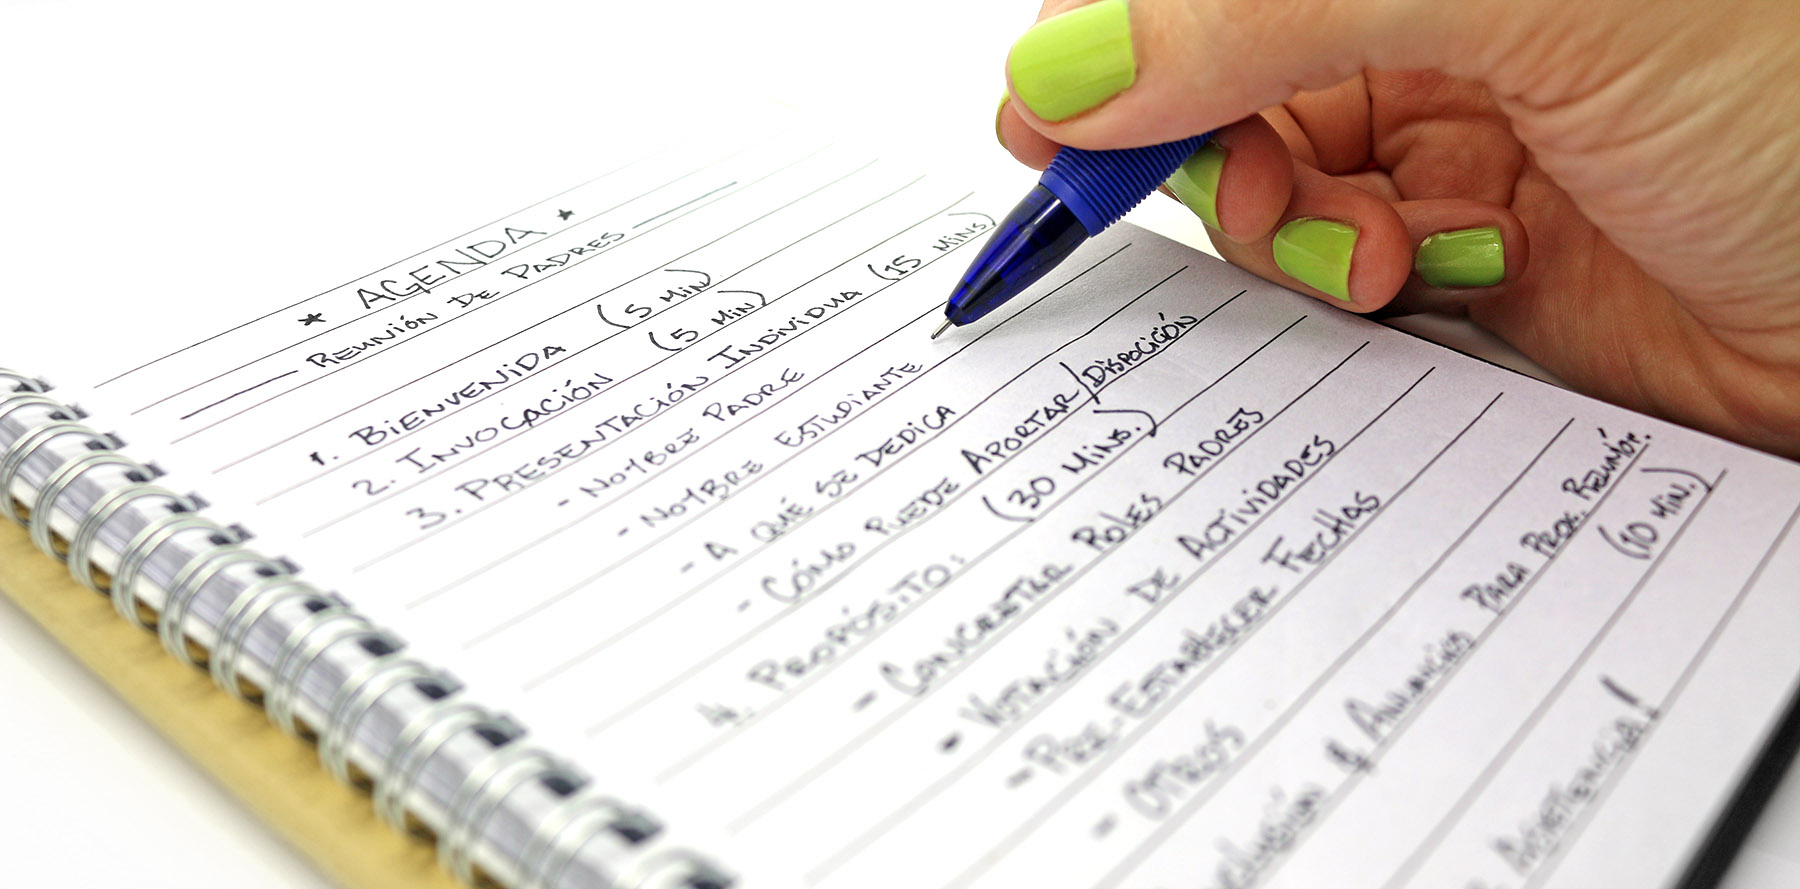 * AGENDA *
REUNIÓN DE PADRES
1. BIENVENIDA (5 MIN)
2. INVOCACIÓN (5 MIN)
3. PRESENTACIÓN INDIVIDUA (15 MINS)
- NOMBRE PADRE
- NOMBRE ESTUDIANTE
- A QUÉ SE DEDICA
- CÓMO PUEDE APORTAR/DISPOCICIÓN
4. PROPÓSITO: (30 MINS.)
- CONCENTRAR ROLES PADRES
- VOTACIÓN DE ACTIVIDADES
- PRE-ESTABLECER FECHAS
- OTROS
& ANUNCIOS PARA PROX. REUNIÓN.
(10 MIN.)